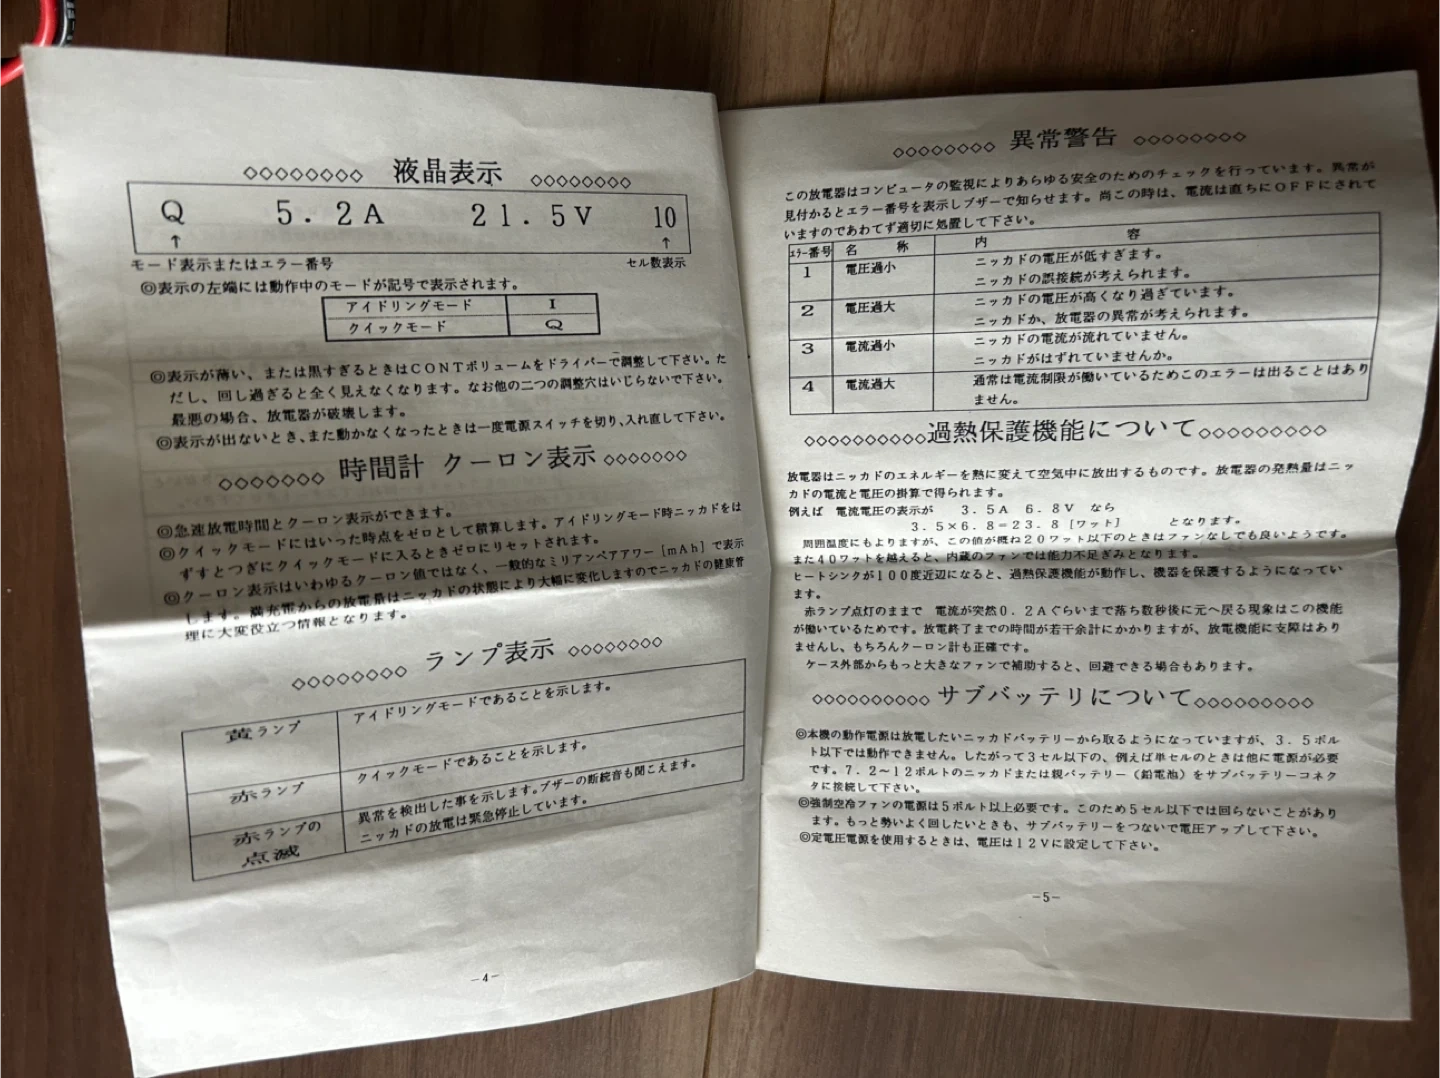 ◇◇◇◇◇◇◇◇ 液晶表示 ◇◇◇◇◇◇◇◇
Q 5.2A 21.5V 10
↑ ↑
モード表示またはエラー番号 セル数表示
◎表示の左端には動作中のモードが記号で表示されます。
アイドリングモード I
クイックモード Q
◎表示が薄い、または黒すぎるときはCONTボリュームをドライバーで調整して下さい。た
だし、回し過ぎると全く見えなくなります。なお他の二つの調整穴はいじらないで下さい。
最悪の場合、放電器が破壊します。
◎表示が出ないとき、また動かなくなったときは一度電源スイッチを切り、入れ直して下さい。
◇◇◇◇◇◇◇ 時間計 クーロン表示 ◇◇◇◇◇◇◇
◎急速放電時間とクーロン表示ができます。
◎クイックモードにはいった時点をゼロとして積算します。アイドリングモード時ニッカドをは
ずすとつぎにクイックモードに入るときゼロにリセットされます。
◎クーロン表示はいわゆるクーロン値ではなく、一般的なミリアンペアアワー[mAh]で表示
します。満充電からの放電量はニッカドの状態により大幅に変化しますのでニッカドの健康管
理に大変役立つ情報となります。
◇◇◇◇◇◇◇◇ ランプ表示 ◇◇◇◇◇◇◇◇
黄ランプ アイドリングモードであることを示します。
赤ランプ クイックモードであることを示します。
赤ランプの 異常を検出した事を示します。ブザーの断続音も聞こえます。
点滅 ニッカドの放電は緊急停止しています。
-4-
◇◇◇◇◇◇◇◇ 異常警告 ◇◇◇◇◇◇◇◇
この放電器はコンピュータの監視によりあらゆる安全のためのチェックを行っています。異常が
見付かるとエラー番号を表示しブザーで知らせます。尚この時は、電流は直ちにOFFにされて
いますのであわてず適切に処置して下さい。
エラー番号 名称 内容
1 電圧過小 ニッカドの電圧が低すぎます。
ニッカドの誤接続が考えられます。
2 電圧過大 ニッカドの電圧が高くなり過ぎています。
ニッカドか、放電器の異常が考えられます。
3 電流過小 ニッカドの電流が流れていません。
ニッカドがはずれていませんか。
4 電流過大 通常は電流制限が働いているためこのエラーは出ることはあり
ません。
◇◇◇◇◇◇◇◇◇◇過熱保護機能について◇◇◇◇◇◇◇◇◇◇
放電器はニッカドのエネルギーを熱に変えて空気中に放出するものです。放電器の発熱量はニッ
カドの電流と電圧の掛算で得られます。
例えば 電流電圧の表示が 3.5A 6.8V なら
3.5×6.8=23.8[ワット] となります。
周囲温度にもよりますが、この値が概ね20ワット以下のときはファンなしでも良いようです。
また40ワットを越えると、内蔵のファンでは能力不足ぎみとなります。
ヒートシンクが100度近辺になると、過熱保護機能が動作し、機器を保護するようになってい
ます。
赤ランプ点灯のままで 電流が突然0.2Aぐらいまで落ち数秒後に元へ戻る現象はこの機能
が働いているためです。放電終了までの時間が若干余計にかかりますが、放電機能に支障はあり
ませんし、もちろんクーロン計も正確です。
ケース外部からもっと大きなファンで補助すると、回避できる場合もあります。
◇◇◇◇◇◇◇◇◇◇サブバッテリについて◇◇◇◇◇◇◇◇◇◇
◎本機の動作電源は放電したいニッカドバッテリーから取るようになっていますが、3.5ボル
ト以下では動作できません。したがって3セル以下の、例えば単セルのときは他に電源が必要
です。7.2～12ボルトのニッカドまたは親バッテリー（鉛電池）をサブバッテリーコネク
タに接続して下さい。
◎強制空冷ファンの電源は5ボルト以上必要です。このため5セル以下では回らないことがあり
ます。もっと勢いよく回したいときも、サブバッテリーをつないで電圧アップして下さい。
◎定電圧電源を使用するときは、電圧は12Vに設定して下さい。
-5-